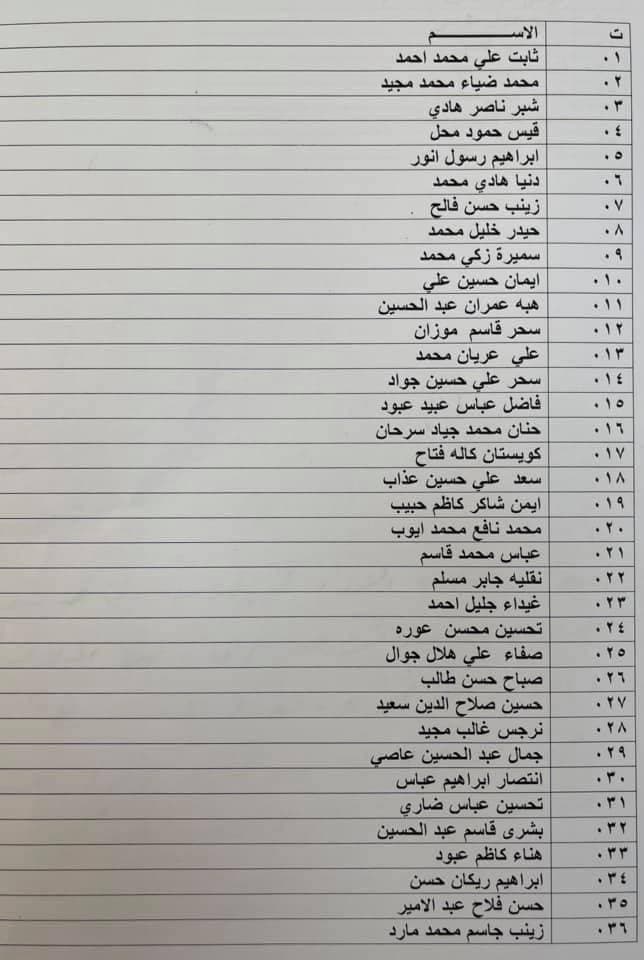 ت الاســـــــــــم
٠١ ثابت علي محمد احمد
٠٢ محمد ضياء محمد مجيد
٠٣ شبر ناصر هادي
٠٤ قيس حمود محل
٠٥ ابراهيم رسول انور
٠٦ دنيا هادي محمد
٠٧ زينب حسن فالح
٠٨ حيدر خليل محمد
٠٩ سميرة زكي محمد
٠١٠ ايمان حسين علي
٠١١ هبه عمران عبد الحسين
٠١٢ سحر قاسم موزان
٠١٣ علي عريان محمد
٠١٤ سحر علي حسين جواد
٠١٥ فاضل عباس عبيد عبود
٠١٦ حنان محمد جياد سرحان
٠١٧ كويستان كاله فتاح
٠١٨ سعد علي حسين عذاب
٠١٩ ايمن شاكر كاظم حبيب
٠٢٠ محمد نافع محمد ايوب
٠٢١ عباس محمد قاسم
٠٢٢ نقليه جابر مسلم
٠٢٣ غيداء جليل احمد
٠٢٤ تحسين محسن عوره
٠٢٥ صفاء علي هلال جوال
٠٢٦ صباح حسن طالب
٠٢٧ حسين صلاح الدين سعيد
٠٢٨ نرجس غالب مجيد
٠٢٩ جمال عبد الحسين عاصي
٠٣٠ انتصار ابراهيم عباس
٠٣١ تحسين عباس ضاري
٠٣٢ بشرى قاسم عبد الحسين
٠٣٣ هناء كاظم عبود
٠٣٤ ابراهيم ريكان حسن
٠٣٥ حسن فلاح عبد الامير
٠٣٦ زينب جاسم محمد مارد